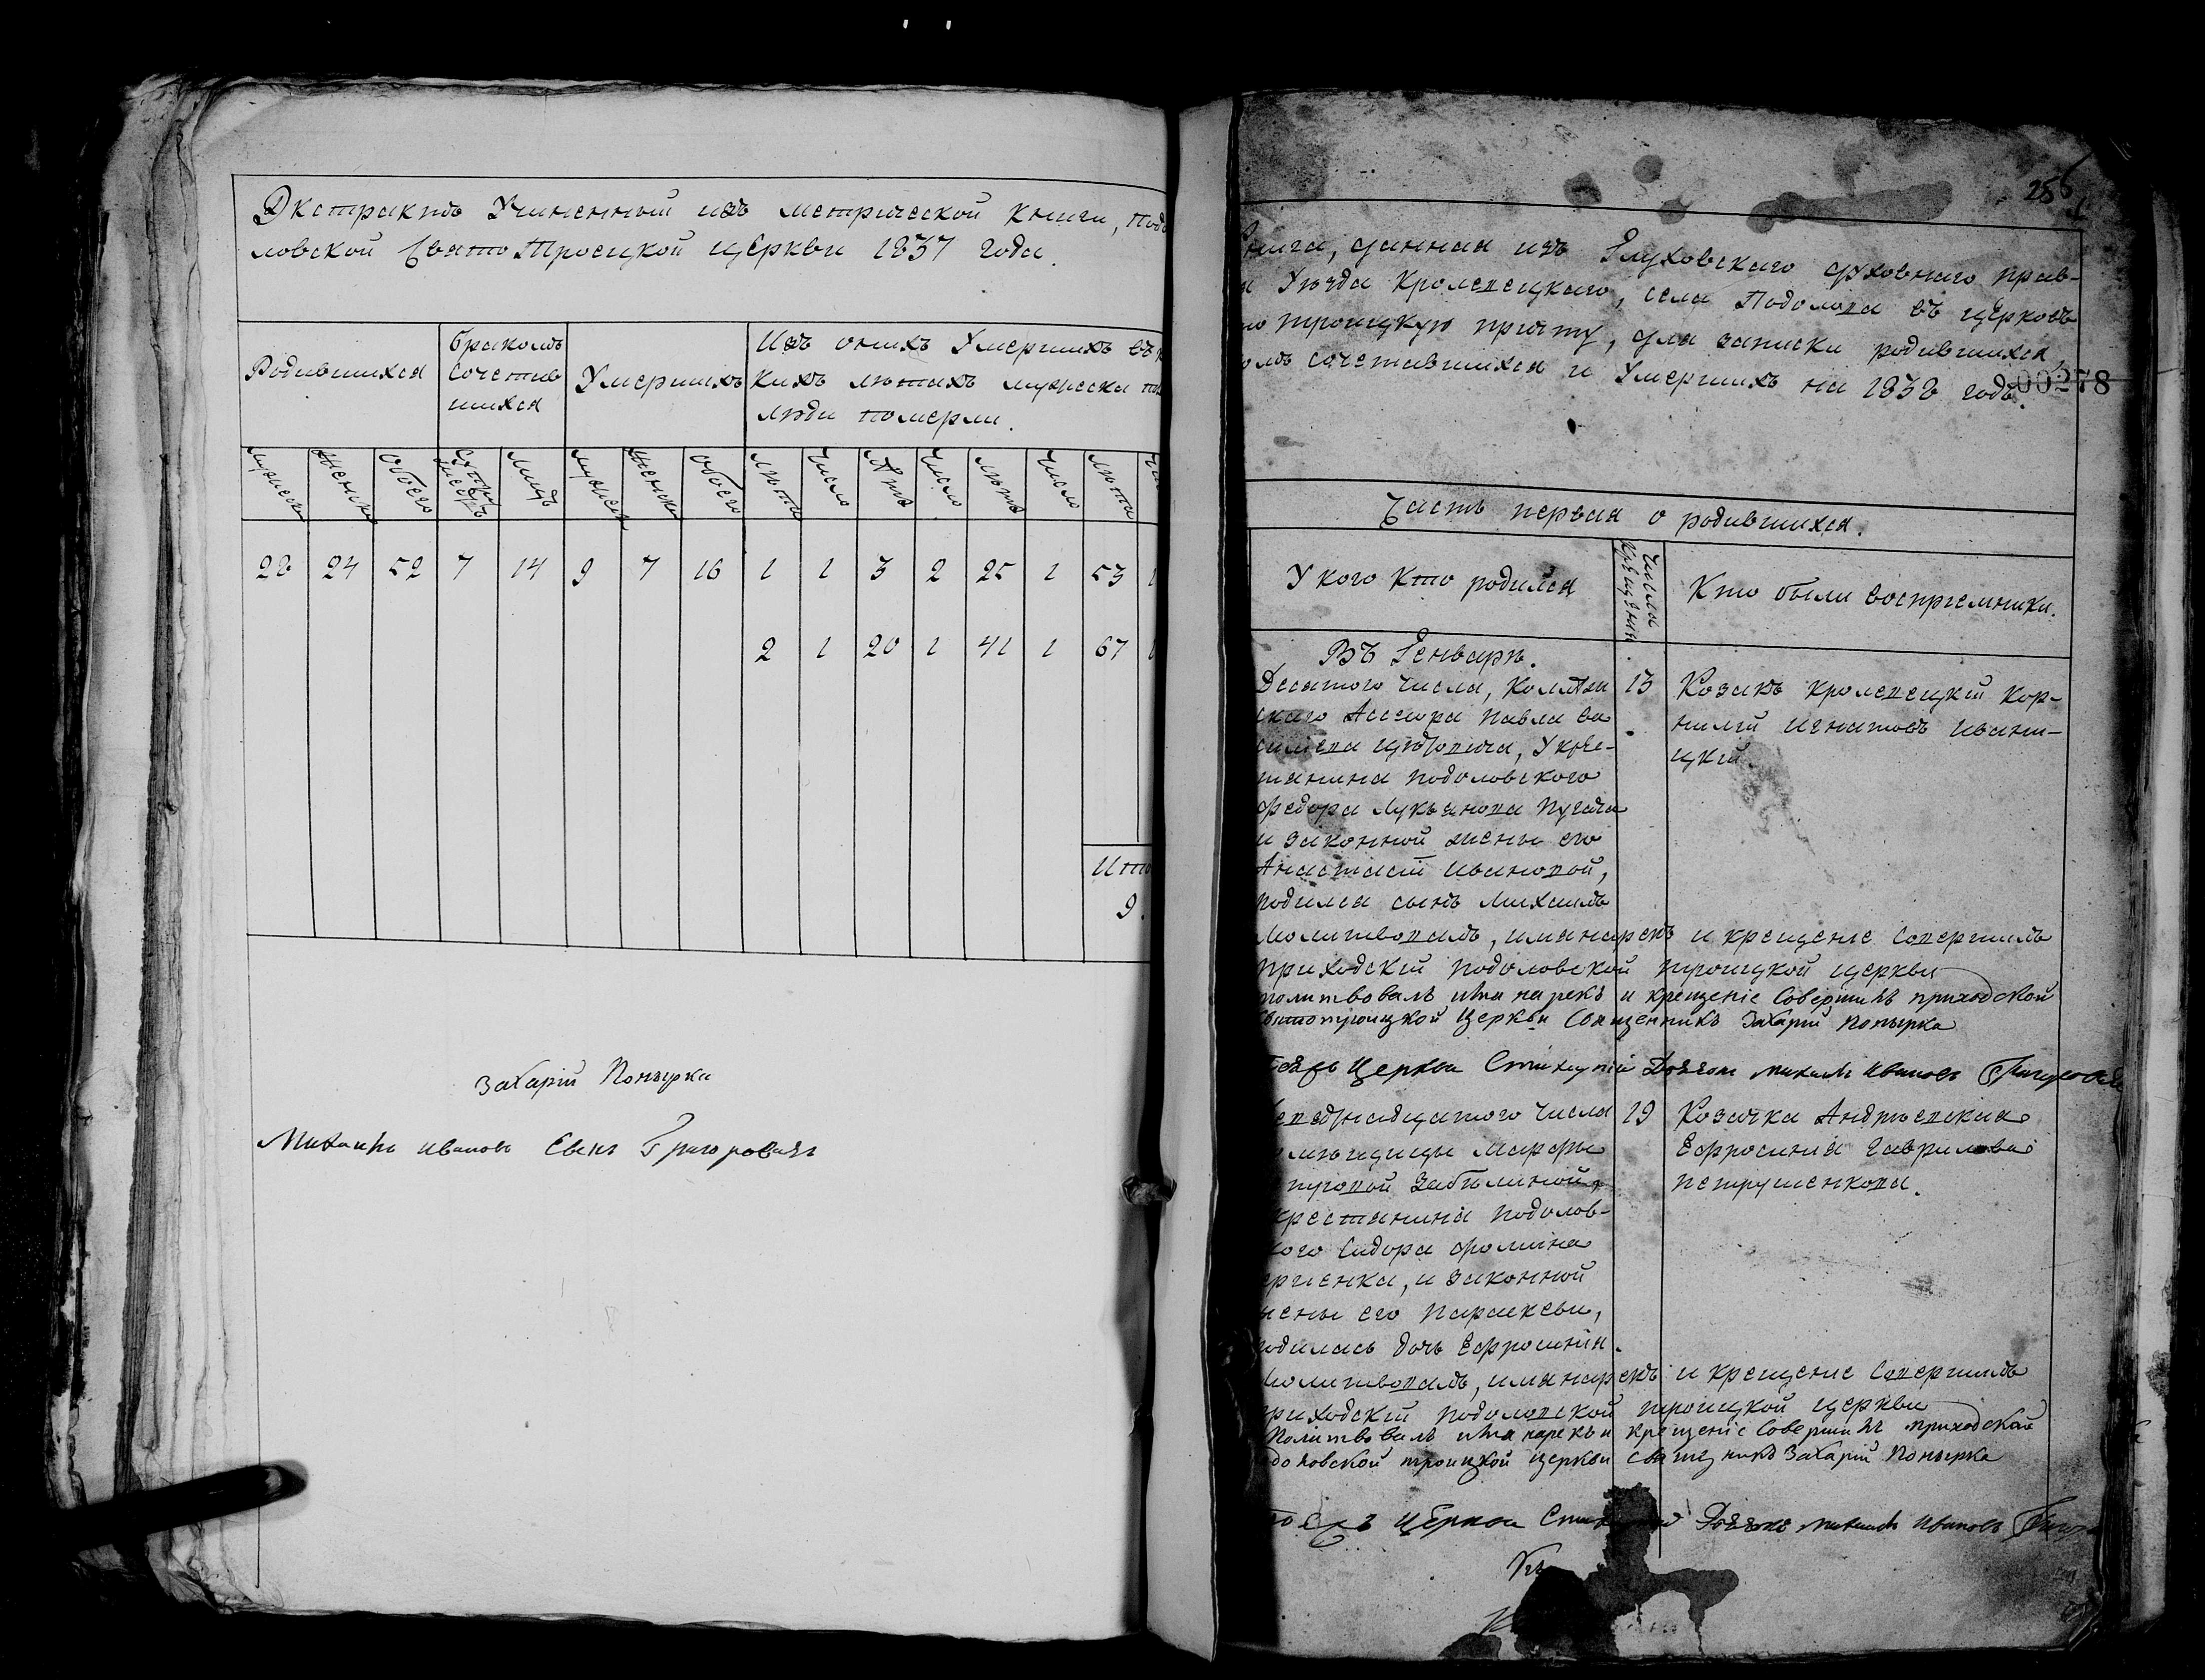 Экстрактъ Учиненный изъ метрической книги, Подо
ловской Свято Троецкой церкви 1837 года.
Родившихся
Бракомъ
Сочетав
шихся
Умершихъ
Изъ оныхъ Умершихъ въ
кихъ лѣтахъ мужеска
люди померли.
мужеска
женска
обоего
лицъ
мужеск
женска
обоего
лѣта
число
лѣта
число
лѣта
число
лѣта
28 24 52 7 14 9 7 16 1 1 3 2 25 1 53
2 1 20 1 41 1 67
Ито
9.
Захарій Понырка
Михаилъ Ивановъ Сынъ Григоровичъ
256
книга, данная изъ Глуховскаго духовнаго прав-
Уѣзда Кролевецкаго, села Подолова въ церковь
Троицкую причту, для записки родившихся,
омъ сочетавшихся и Умершихъ на 1838 годъ.
00278
Часть первая о родившихся.
У кого кто родился
Числа
крещения
Кто были воспріемники.
Въ Генварѣ.
Десятого числа, Коллѣж
скаго Ассесора Павла Ва
силева, У кре-
стянина Подоловского
Федора Лукьянова Пугача
и законной жены его
Анастасіи Ивановой,
родился сынъ Михаилъ
13
Козакъ кролевецкій Кор-
нилій Игнатовъ Ивани-
цкій.
Молитвовалъ, имя нарекъ и крещеніе Совершилъ
приходскій Подоловской троицкой церкви
молитвовалъ имя нарекъ и крещеніе Совершилъ приходской
Святотроицкой Церкви Священникъ Захарій Понырка
Церкви Стихарній Дьячокъ Михаилъ Ивановъ Григорович
надцатого числа
Марфы
Забѣлиной,
крестянина Подолов-
кого Сидора Фомина
ергіенка, и законной
жены его Параскевы,
родилась дочь Ефросинія.
19
Козачка Андрѣевская
Ефросинія Гаврилова
Петрушенкова.
Молитвовалъ, имя нарекъ и крещеніе Совершилъ
приходскій Подоловской троицкой церкви
Молитвовалъ имя нарекъ и крещеніе Совершилъ приходской
Подоловской троицкой церкви священникъ Захарій Понырка
Церкви Дьячокъ Михаилъ Ивановъ